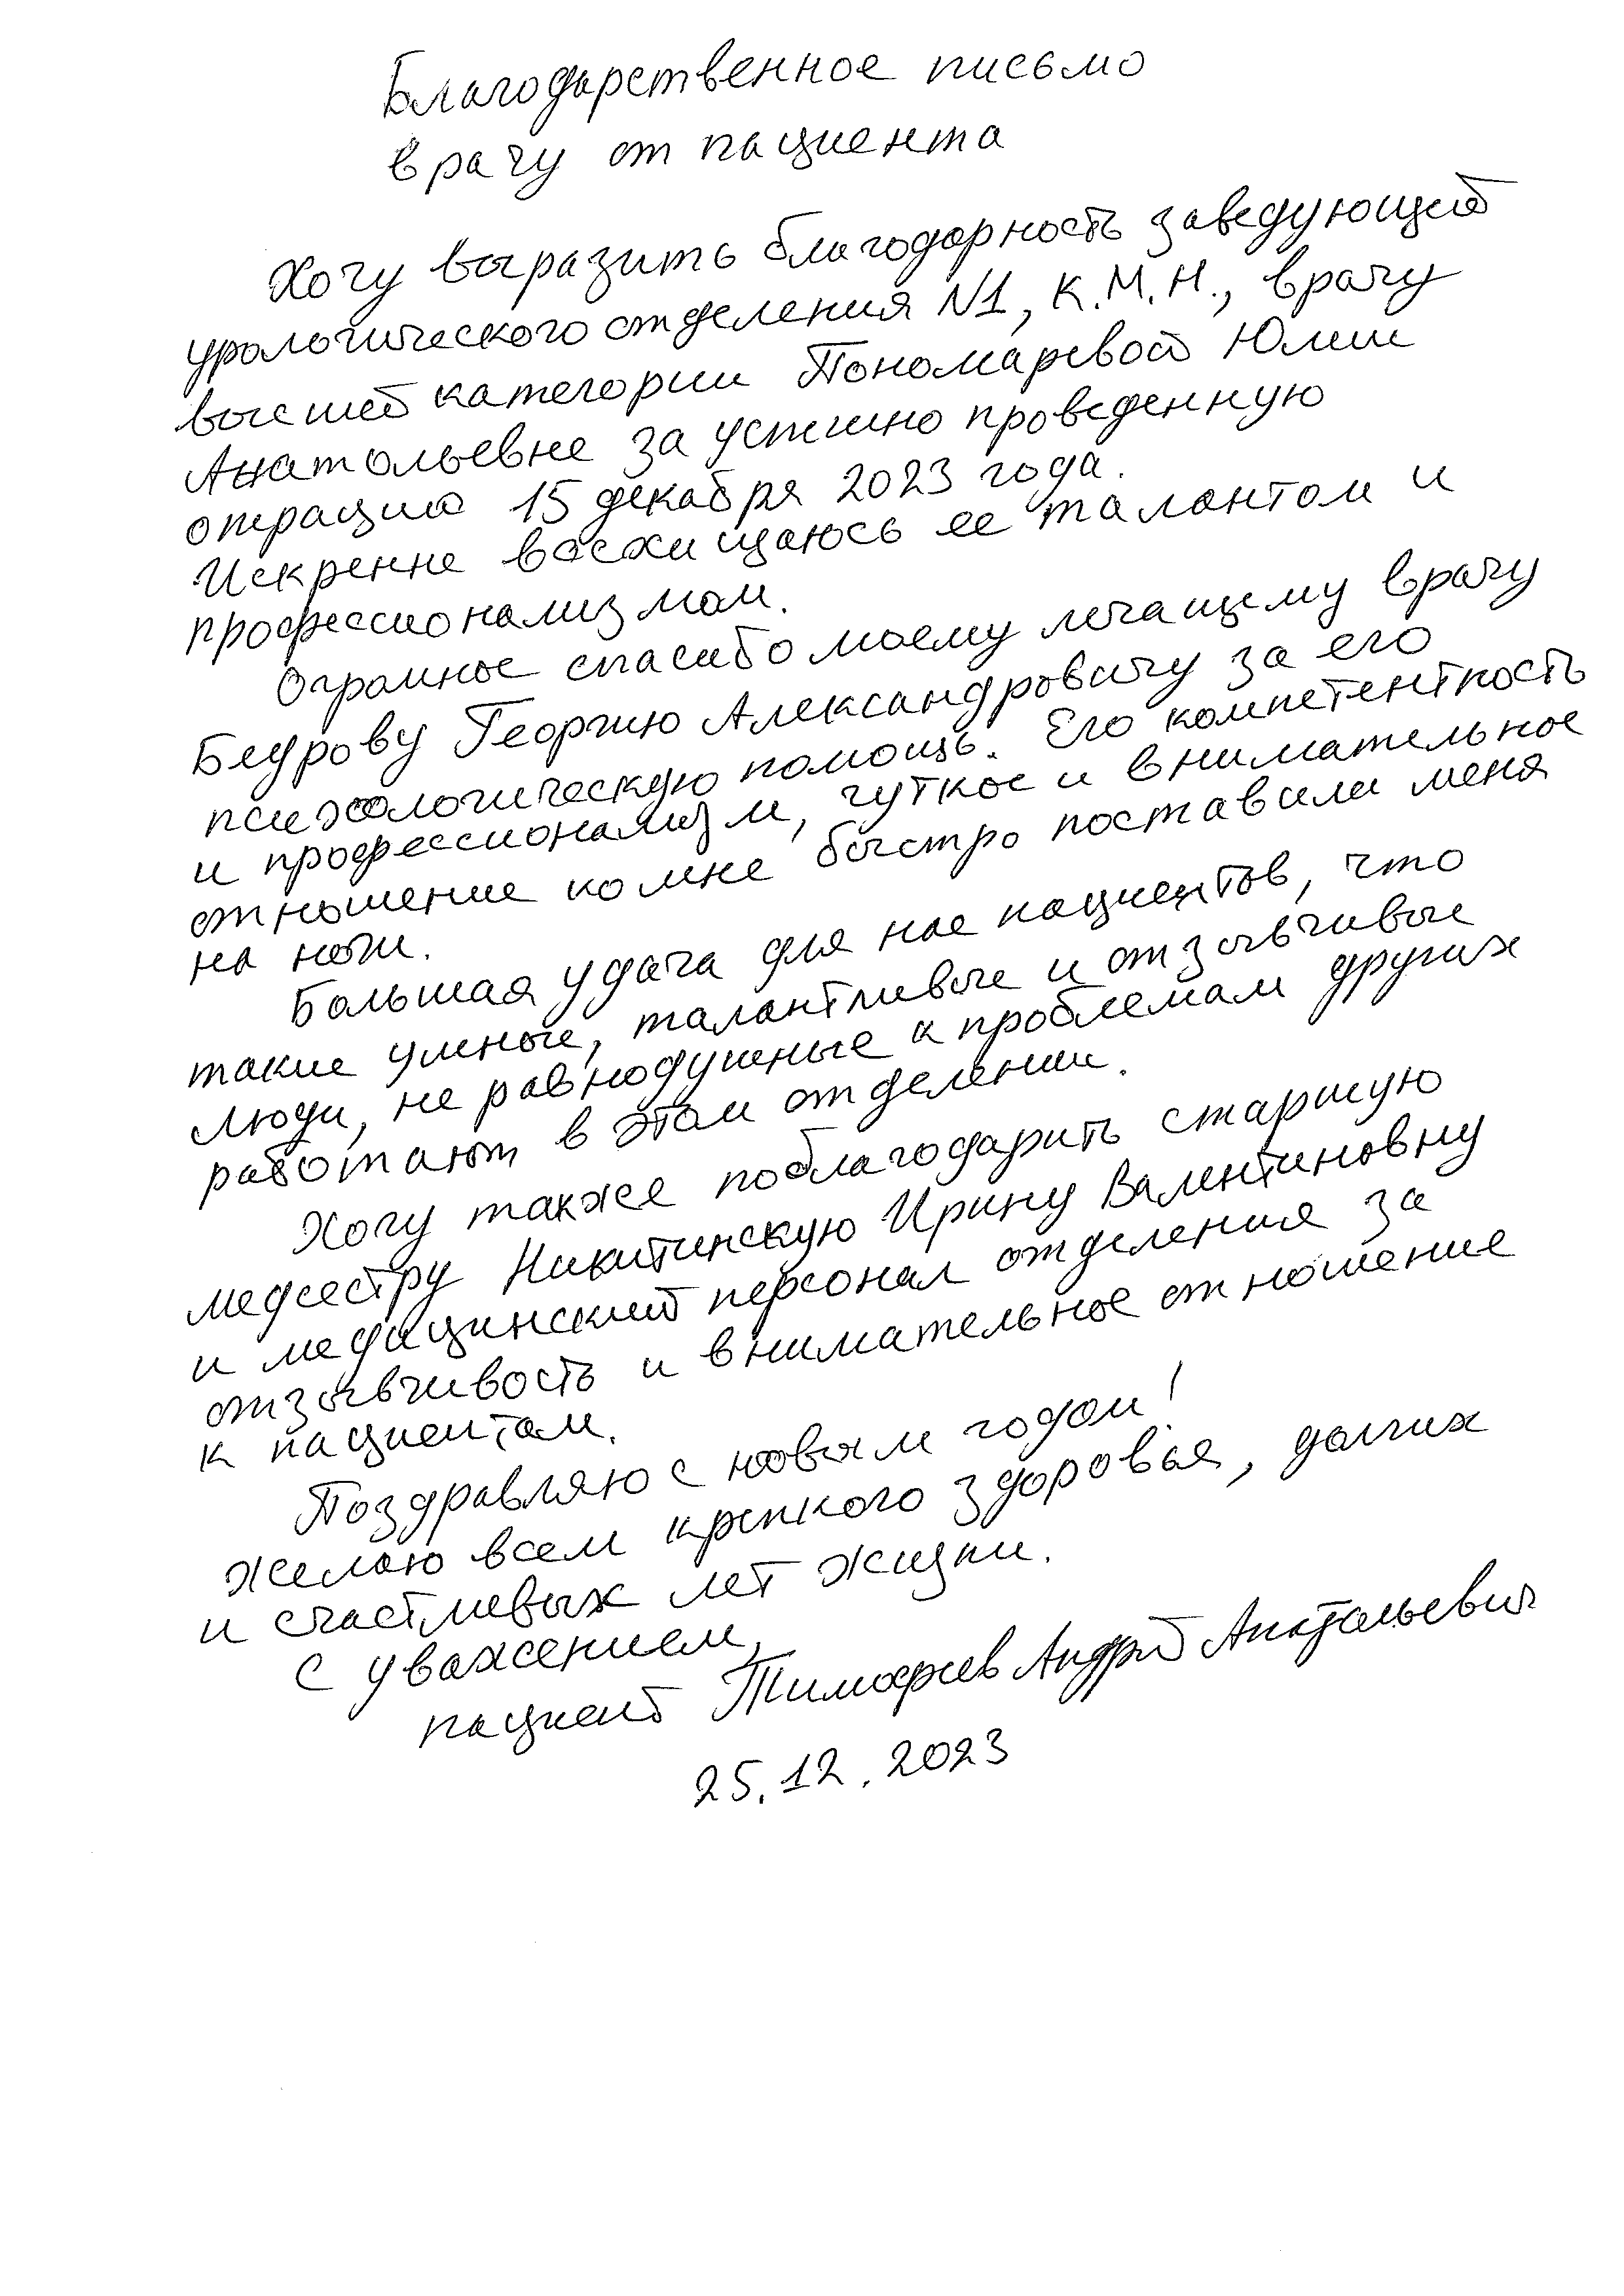 Благодарственное письмо
врачу от пациента
Хочу выразить благодарность заведующей
урологического отделения №1, К.М.Н., врачу
высшей категории Пономаревой Юлии
Анатольевне за успешно проведенную
операцию 15 декабря 2023 года.
Искренне восхищаюсь ее талантом и
профессионализмом.
Огромное спасибо моему лечащему врачу
Георгию Александровичу за его
психологическую помощь. Его компетентность
и профессионализм, чуткое и внимательное
отношение ко мне быстро поставили меня
на ноги.
Большая удача для нас пациентов, что
такие умные, талантливые и отзывчивые
люди, не равнодушные к проблемам других
работают в этом отделении.
Хочу также поблагодарить старшую
медсестру Никитинскую Ирину Валентиновну
и медицинский персонал отделения за
отзывчивость и внимательное отношение
к пациентам.
Поздравляю с новым годом!
Желаю всем крепкого здоровья, долгих
и счастливых лет жизни.
С уважением,
пациент Тимофеев Андрей Анатольевич
25.12.2023